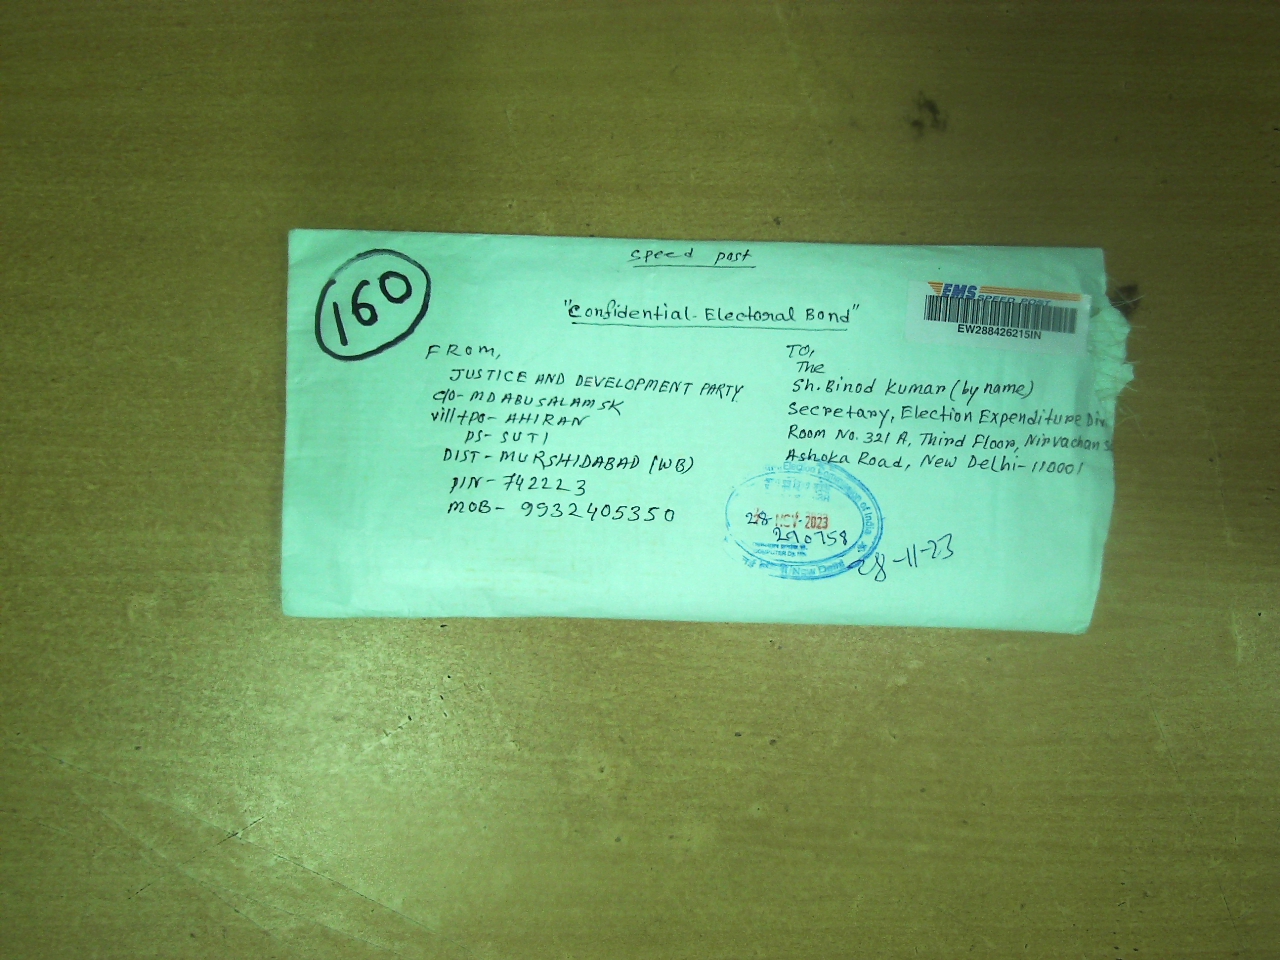 160
Speed post
"Confidential-Electoral Bond"
EMS SPEED POST
EW288426215IN
FROM,
JUSTICE AND DEVELOPMENT PARTY
C/O- MD ABUSALAM SK
vill+po- AHIRAN
PS- SUTI
DIST- MURSHIDABAD (WB)
PIN- 742223
MOB- 9932405350
TO,
The
Sh. Binod Kumar (by name)
Secretary, Election Expenditure Div
Room No. 321 A, Third Floor, Nirvachan S
Ashoka Road, New Delhi-110001
Election Commission of India
28 NOV 2023
290758
New Delhi
28-11-23